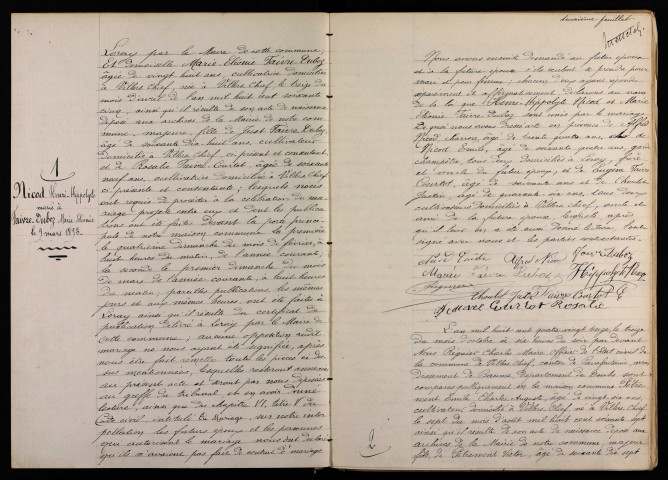 Loray par le Maire de cette commune;
Et demoiselle Marie Elionie Faivre Duboz
âgée de vingt huit ans, cultivatrice domiciliée
à Villers Chief, née à Villers Chief, le treize du
mois d'avril de l'an mil huit cent soixante
cinq, ainsi qu'il résulte de son acte de naissance
déposé aux archives de la Mairie de notre com
mune, majeure, fille de Faivre Duboz,
âgé de soixante dix huit ans, cultivateur
domicilié à Villers Chief, ci présent et consentant
et de Rosalie Faivre Courtot, âgée de soixante
neuf ans, cultivatrice domiciliée à Villers Chief
ci présente et consentante; lesquels nous
ont requis de procéder à la célébration du ma
riage projeté entre eux et dont les publica
tions ont été faites devant la porte princi
pale de notre maison commune la première
le quatrième dimanche du mois de février, à
huit heures du matin, de l'année courante,
la seconde le premier dimanche du mois
de mars de l'année courante, à huit heures
du matin; pareilles publications, les mêmes
jours et aux mêmes heures, ont été faites à
Loray ainsi qu'il résulte du certificat de
publication délivré à Loray par le Maire de
cette commune; aucune opposition audit
mariage ne nous ayant été signifiée, après
nous être fait remettre toutes les pièces ci des
sus mentionnées, lesquelles resteront annexées
au présent acte et seront par nous déposées
au greffe du tribunal et en avoir donné
lecture, ainsi que du chapitre VI, titre V du
Code civil intitulé du Mariage, sur notre inter
pellation les futurs époux et les personnes
qui autorisent le mariage nous ont déclaré
qu'ils n'avaient pas fait de contrat de mariage.
1
Nicod Henri Hippolyte
marié à
Faivre Duboz Marie Elionie
le 9 mars 1893.
deuxième feuillet
Nous avons ensuite demandé au futur époux
et à la future épouse s'ils veulent se prendre pour
mari et pour femme; chacun d'eux ayant répondu
séparément et affirmativement déclarons au nom
de la loi que Henri Hippolyte Nicod et Marie
Elionie Faivre Duboz sont unis par le mariage.
De quoi nous avons dressé acte en présence de Alfred
Nicod, charron, âgé de trente quatre ans, de
Nicod Emile, âgé de soixante quatre ans, garde
champêtre, tous deux domiciliés à Loray, frère
et oncle du futur époux, et de Eugène Faivre
Courtot, âgé de soixante ans et de Choulet
Justin, âgé de quarante six ans, tous deux
cultivateurs domiciliés à Villers Chief, oncle et
ami de la future épouse, lesquels après
qu'il leur en a été aussi donné lecture, l'ont
signé avec nous et les parties contractantes.
Nicod Emile Alfred Nicod Faivre Duboz
Marie Faivre Duboz Hippolyte Nicod
Choulet Justin Faivre Courtot E
Faivre Courtot Rosalie
2
L'an mil huit cent quatre vingt treize le treize
du mois d'octobre à dix heures du soir par devant
Nous Péquinot Charles Maire Officier de l'Etat civil de
la commune de Villers Chief, canton de Pierrefontaine arron
dissement de Baume, Département du Doubs, sont
comparus publiquement en la maison commune
Emile Charles Auguste, âgé de vingt six ans,
cultivateur domicilié à Villers Chief, né à Villers Chief,
le sept du mois d'août mil huit cent soixante sept
ainsi qu'il résulte de son acte de naissance déposé aux
archives de la Mairie de notre commune, majeur
fils de Victor, âgé de soixante dix sept